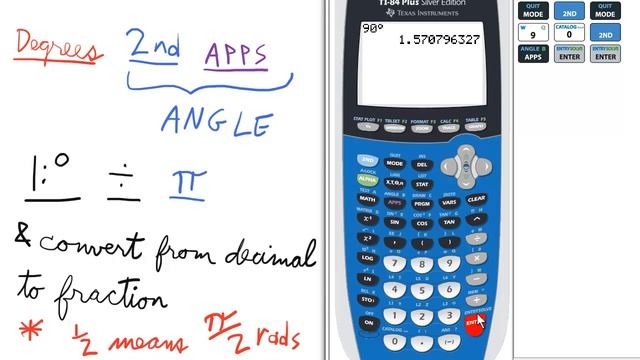 Degrees 2nd APPS
ANGLE
1:° ÷ π
& convert from decimal
to fraction
* 1/2 means π/2 rads
TI-84 Plus Silver Edition
TEXAS INSTRUMENTS
90°
1.570796327
STAT PLOT F1 TBLSET F2 FORMAT F3 CALC F4 TABLE F5
Y= WINDOW ZOOM TRACE GRAPH
QUIT INS
2ND MODE DEL
A-LOCK LINK LIST
ALPHA X,T,θ,n STAT
TEST A ANGLE B DRAW C DISTR
MATH APPS PRGM VARS CLEAR
MATRIX D SIN⁻¹ E COS⁻¹ F TAN⁻¹ G π H
x⁻¹ SIN COS TAN ^
x² , ( ) ÷
LOG 7 8 9 ×
LN 4 5 6 −
RCL X MEM
STO› 1 2 3 +
OFF CATALOG ANS ? ENTRY SOLVE
ON 0 . (-) ENTER
QUIT QUIT
MODE 2ND MODE
W CATALOG
9 0 2ND
ANGLE B ENTRY SOLVE ENTRY SOLVE
APPS ENTER ENTER